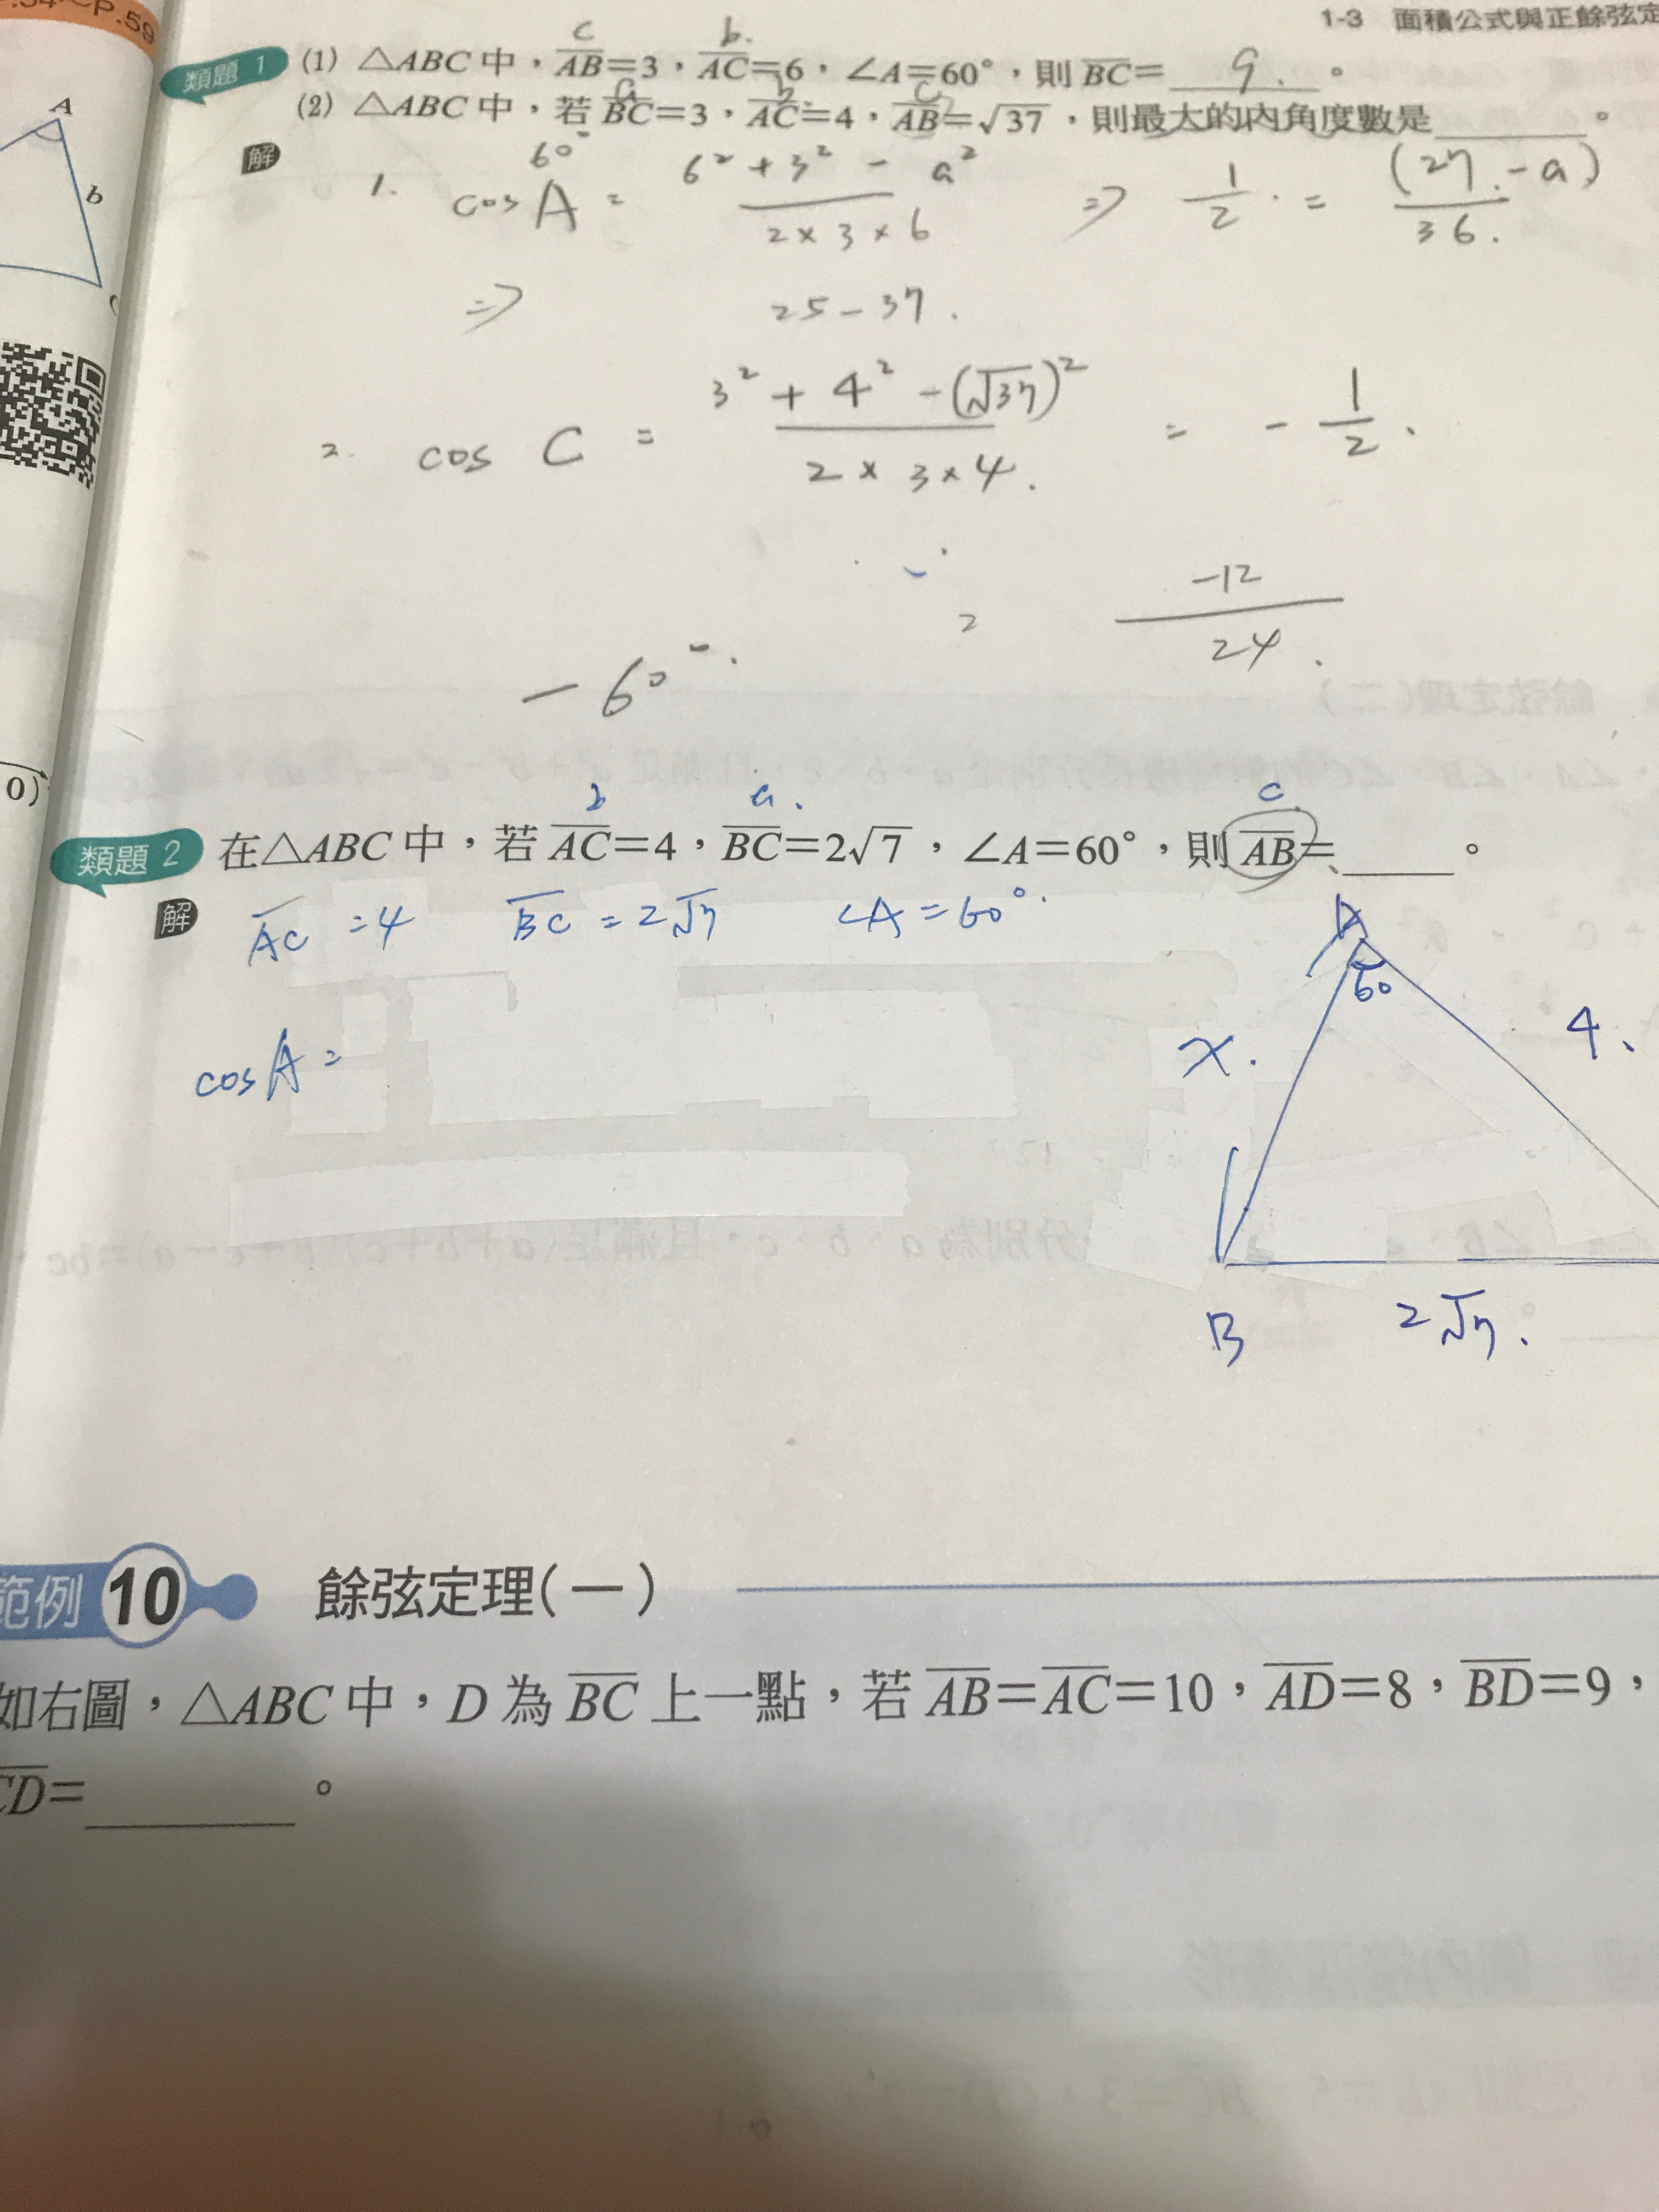 .54~P.59
1-3 面積公式與正餘弦定
A
b
0)
c b.
類題 1 (1) △ABC 中，AB=3，AC=6，∠A=60°，則 BC= 9. 。
a b c
(2) △ABC 中，若 BC=3，AC=4，AB=√37，則最大的內角度數是＿＿＿。
解
60°
1. cos A = (6² + 3² - a²)/(2×3×6) ⇒ 1/2 = (27 - a)/36.
⇒ 25-37.
2. cos C = (3² + 4² - (√37)²)/(2×3×4) = -1/2.
= -12/24.
-60°.
b a. c
類題 2 在△ABC 中，若 AC=4，BC=2√7，∠A=60°，則 AB=＿＿＿。
解 AC=4 BC=2√7 ∠A=60°.
cos A =
A
60
x.
4.
B
2√7.
範例 10 餘弦定理(一)
如右圖，△ABC 中，D 為 BC 上一點，若 AB=AC=10，AD=8，BD=9，
CD=＿＿＿。